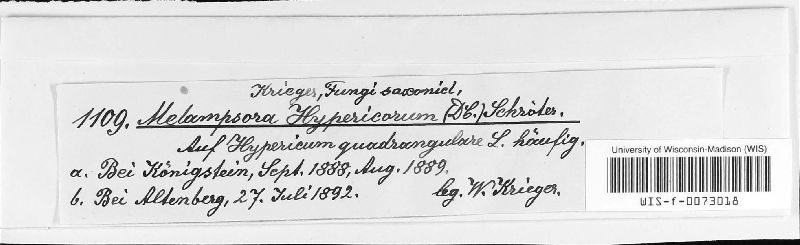 Krieger, Fungi saxonici,
1109. Melampsora Hypericorum (DC.) Schröter.
Auf Hypericum quadrangulare L. häufig.
a. Bei Königstein, Sept. 1888, Aug. 1889.
b. Bei Altenberg, 27. Juli 1892. leg. W. Krieger.
University of Wisconsin-Madison (WIS)
WIS-f-0073018